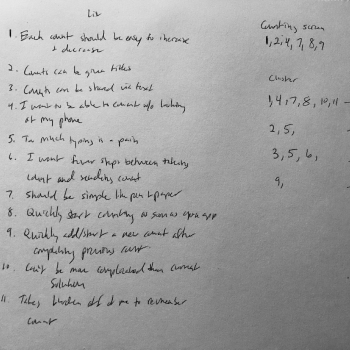 Liz
1. Each count should be easy to increase
+ decrease
2. Counts can be given titles
3. Counts can be shared via text
4. I want to be able to count w/o looking
at my phone
5. Too much typing is a pain
6. I want fewer steps between taking
count and sending count
7. Should be simple like pen + paper
8. Quickly start counting as soon as open app
9. Quickly add/start a new count after
completing previous count.
10. Can't be more complicated than current
solution
11. Takes burden off of me to remember
count
Counting screen
1, 2, 4, 7, 8, 9
cluster
1, 4, 7, 8, 10, 11 -
2, 5,
3, 5, 6,
9,